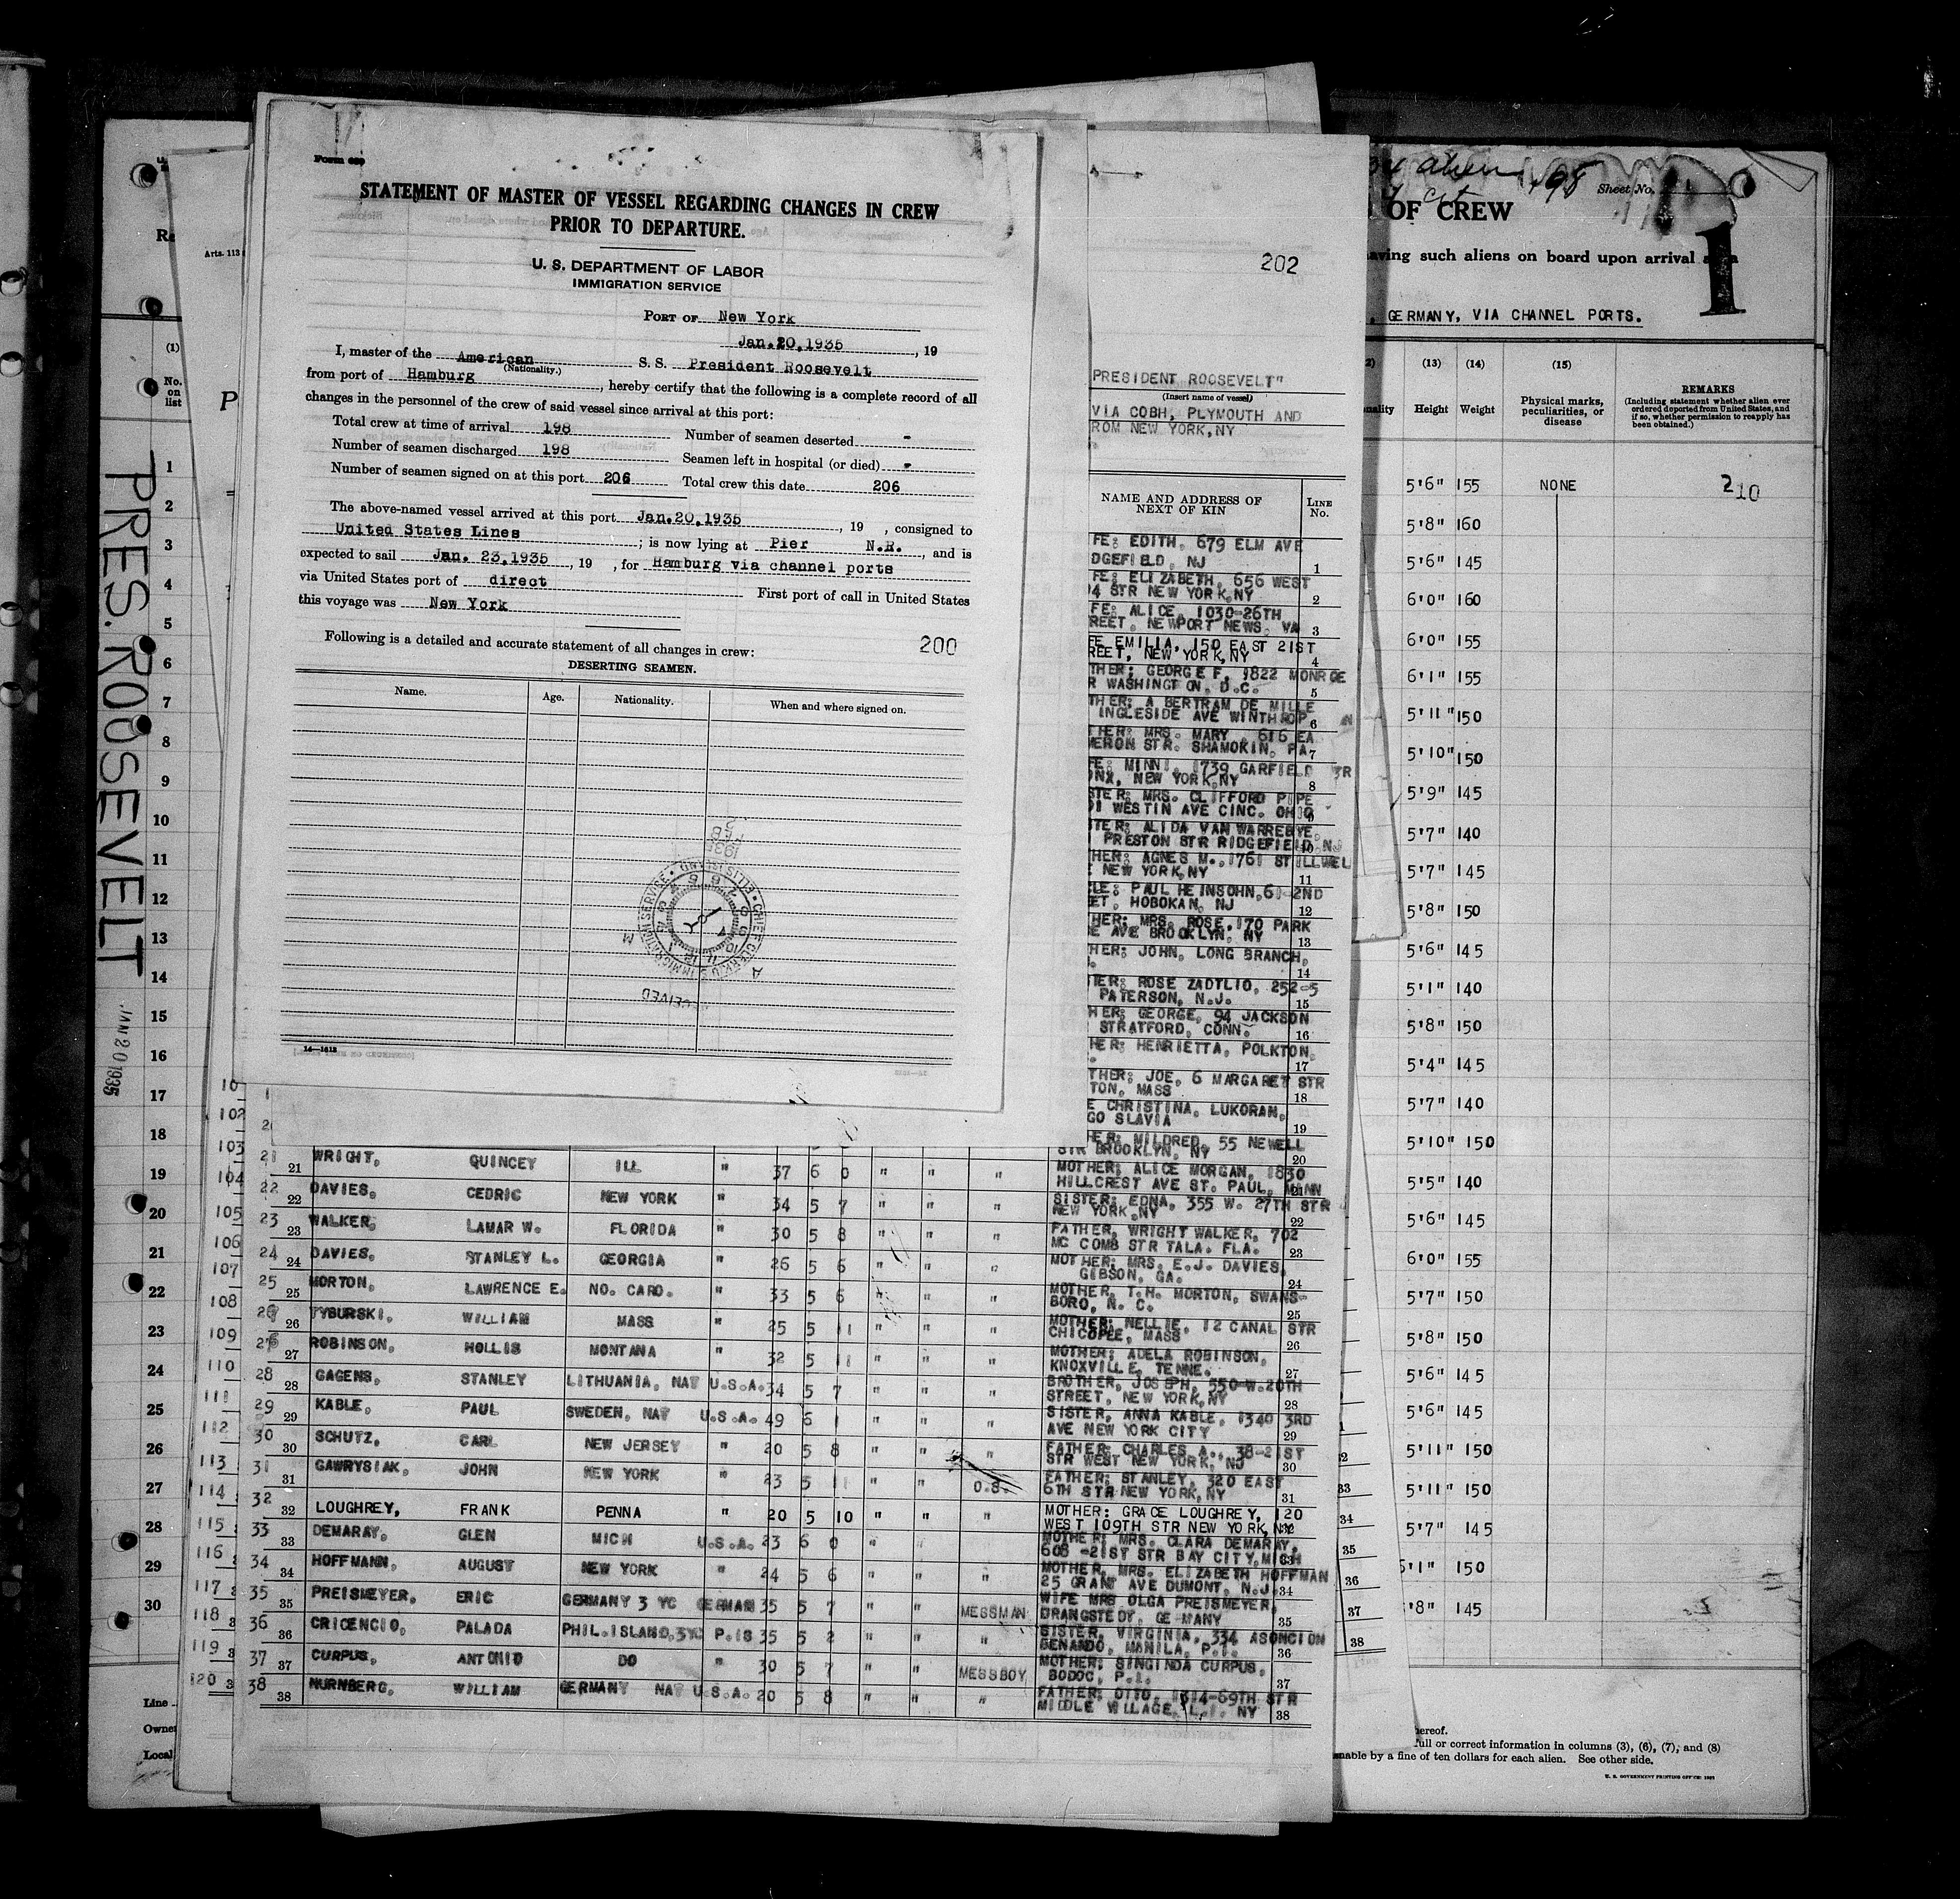 Form 689
STATEMENT OF MASTER OF VESSEL REGARDING CHANGES IN CREW
PRIOR TO DEPARTURE.
U. S. DEPARTMENT OF LABOR
IMMIGRATION SERVICE
PORT OF New York
Jan.20,1935, 19
I, master of the American S. S. President Roosevelt
(Nationality.)
from port of Hamburg, hereby certify that the following is a complete record of all
changes in the personnel of the crew of said vessel since arrival at this port:
Total crew at time of arrival 198 Number of seamen deserted -
Number of seamen discharged 198 Seamen left in hospital (or died) -
Number of seamen signed on at this port 206 Total crew this date 206
The above-named vessel arrived at this port Jan.20,1935, 19 , consigned to
United States Lines; is now lying at Pier N.R., and is
expected to sail Jan. 23,1935, 19 , for Hamburg via channel ports
via United States port of direct First port of call in United States
this voyage was New York
Following is a detailed and accurate statement of all changes in crew: 200
DESERTING SEAMEN.
Name. Age. Nationality. When and where signed on.
14—1612
202
PRESIDENT ROOSEVELT"
(Insert name of vessel)
VIA COBH, PLYMOUTH AND
ROM NEW YORK,NY
NAME AND ADDRESS OF
NEXT OF KIN
LINE
No.
FE: EDITH, 679 ELM AVE
DGEFIELD, NJ 1
FE: ELIZABETH, 656 WEST
4 STR NEW YORK,NY 2
FE: ALICE, 1030-26TH
REET, NEWPORT NEWS, VA 3
FE EMILIA, 150 EAST 21ST
REET, NEW YORK,NY 4
THER: GEORGE F, 1822 MONROE
R WASHINGTON, D.C. 5
THER: A BERTRAM DE MILLE
INGLESIDE AVE WINTHROP 6
HER: MRS. MARY, 616 EA
MERON STR. SHAMOKIN, PA 7
FE: MINNI, 1739 GARFIELD STR
ONX, NEW YORK,NY 8
STER: MRS. CLIFFORD PIPE
01 WESTIN AVE CINC. OHIO 9
TER: ALIDA VAN WARREBYE,
PRESTON STR RIDGEFIELD NJ 10
HER: AGNES M., 1761 STILLWEL
NEW YORK,NY 11
LE: PAUL HEINSOHN, 61-2ND
EET, HOBOKAN, NJ 12
HER: MRS. ROSE, 170 PARK
E AVE BROOKLYN, NY 13
HER: JOHN, LONG BRANCH,
14
TER: ROSE ZADYLIO, 252-5
PATERSON, N.J. 15
HER: GEORGE, 94 JACKSON
STRATFORD, CONN. 16
HER: HENRIETTA, POLKTON,
17
THER: JOE, 6 MARGARET STR
TON, MASS 18
E CHRISTINA, LUKORAN,
GO SLAVIA 19
HER: MILDRED, 55 NEWELL
STR BROOKLYN, NY 20
21 21 WRIGHT, QUINCEY ILL " 37 6 0 " " " MOTHER: ALICE MORGAN, 1830
HILLCREST AVE ST. PAUL, MINN 21
22 22 DAVIES, CEDRIC NEW YORK " 34 5 7 " " " SISTER: EDNA, 355 W. 27TH STR
NEW YORK,NY 22
23 23 WALKER, LAMAR W. FLORIDA " 30 5 8 " " " FATHER, WRIGHT WALKER, 702
MC COMB STR TALA. FLA. 23
24 24 DAVIES, STANLEY L. GEORGIA " 26 5 6 " " " MOTHER: MRS. E.J. DAVIES,
GIBSON, GA. 24
25 25 MORTON, LAWRENCE E. NO. CARO. " 33 5 6 " " " MOTHER, T.H. MORTON, SWANS-
BORO, N. C. 25
26 26 TYBURSKI, WILLIAM MASS " 25 5 11 " " " MOTHER: NELLIE, 12 CANAL STR
CHICOPEE, MASS 26
27 ROBINSON, HOLLIS MONTANA " 32 5 11 " " " MOTHER: ADELA ROBINSON,
KNOXVILLE, TENNE. 27
28 28 GAGENS, STANLEY LITHUANIA, NAT U.S.A. 34 5 7 " " " BROTHER, JOSEPH, 550-W.20TH
STREET, NEW YORK,NY 28
29 29 KABLE, PAUL SWEDEN, NAT U.S.A. 49 6 1 " " " SISTER, ANNA KABLE, 1340 3RD
AVE NEW YORK CITY 29
30 30 SCHUTZ, CARL NEW JERSEY " 20 5 8 " " " FATHER: CHARLES A., 38-21ST
STR WEST NEW YORK, NJ 30
31 31 GAWRYSIAK, JOHN NEW YORK " 23 5 11 " " O.S. FATHER: STANLEY, 320 EAST
6TH STR NEW YORK,NY 31
32 32 LOUGHREY, FRANK PENNA " 20 5 10 " " " MOTHER: GRACE LOUGHREY, 120
WEST 109TH STR NEW YORK,NY 32
33 33 DEMARAY, GLEN MICH U.S.A. 23 6 0 " " " MOTHER: MRS. CLARA DEMARAY,
608 -21ST STR BAY CITY,MICH 33
34 34 HOFFMANN, AUGUST NEW YORK " 24 5 6 " " " MOTHER, MRS. ELIZABETH HOFFMAN
25 GRANT AVE DUMONT, N.J. 34
35 35 PREISMEYER, ERIC GERMANY 3 YC GERMAN 35 5 7 " " MESSMAN WIFE MRS OLGA PREISMEYER,
DRANGSTEDY, GE MANY 35
36 36 CRICENCIO, PALADA PHIL.ISLAND,3YC P.IS 35 5 2 " " " SISTER, VIRGINIA, 334 ASONCION
BENANDO, MANILA, P.I. 36
37 37 CURPUS, ANTONIO DO " 30 5 7 " " MESSBOY MOTHER: SINGINDA CURPUS,
BODOC, P.I. 37
38 38 NURNBERG, WILLIAM GERMANY NAT U.S.A. 20 5 8 " " " FATHER: OTTO, 1614-69TH STR
MIDDLE VILLAGE, L.I. NY 38
Sheet No.
1
OF CREW
aving such aliens on board upon arrival
GERMANY, VIA CHANNEL PORTS.
(13) (14) (15)
nality Height Weight Physical marks, peculiarities, or disease
REMARKS
(Including statement whether alien ever
ordered deported from United States, and
if so, whether permission to reapply has
been obtained.)
5'6" 155 NONE 210
5'8" 160
5'6" 145
6'0" 160
6'0" 155
6'1" 155
5'11" 150
5'10" 150
5'9" 145
5'7" 140
5'7" 145
5'8" 150
5'6" 145
5'1" 140
5'8" 150
5'4" 145
5'7" 140
5'10" 150
5'5" 140
5'6" 145
6'0" 155
5'7" 150
5'8" 150
5'6" 145
5'6" 145
5'11" 150
5'11" 150
5'7" 145
5'1" 150
'8" 145
hereof.
full or correct information in columns (3), (6), (7), and (8)
nable by a fine of ten dollars for each alien. See other side.
U. S. GOVERNMENT PRINTING OFFICE
Arts. 113
(1)
No.
on
list
PRES. ROOSEVELT
JAN 20 1935
1
2
3
4
5
6
7
8
9
10
11
12
13
14
15
16
17
18
19
20
21
22
23
24
25
26
27
28
29
30
Line
Owner
Local
102
103
104
105
106
107
108
109
110
111
112
113
114
115
116
117
118
119
120
34
35
36
37
38